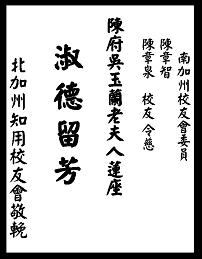 南加州校友會委員
陳章智
陳章泉 校友 令慈
陳府吳玉蘭老夫人蓮座
淑德留芳
北加州知用校友會敬輓